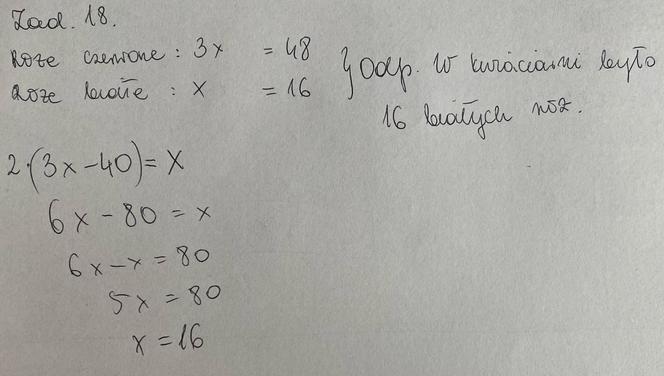 Zad. 18.
Róże czerwone : 3x = 48
Róże białe : x = 16
} Odp. W kwiaciarni było
16 białych róż.
2·(3x-40)= x
6x - 80 = x
6x-x = 80
5x = 80
x = 16